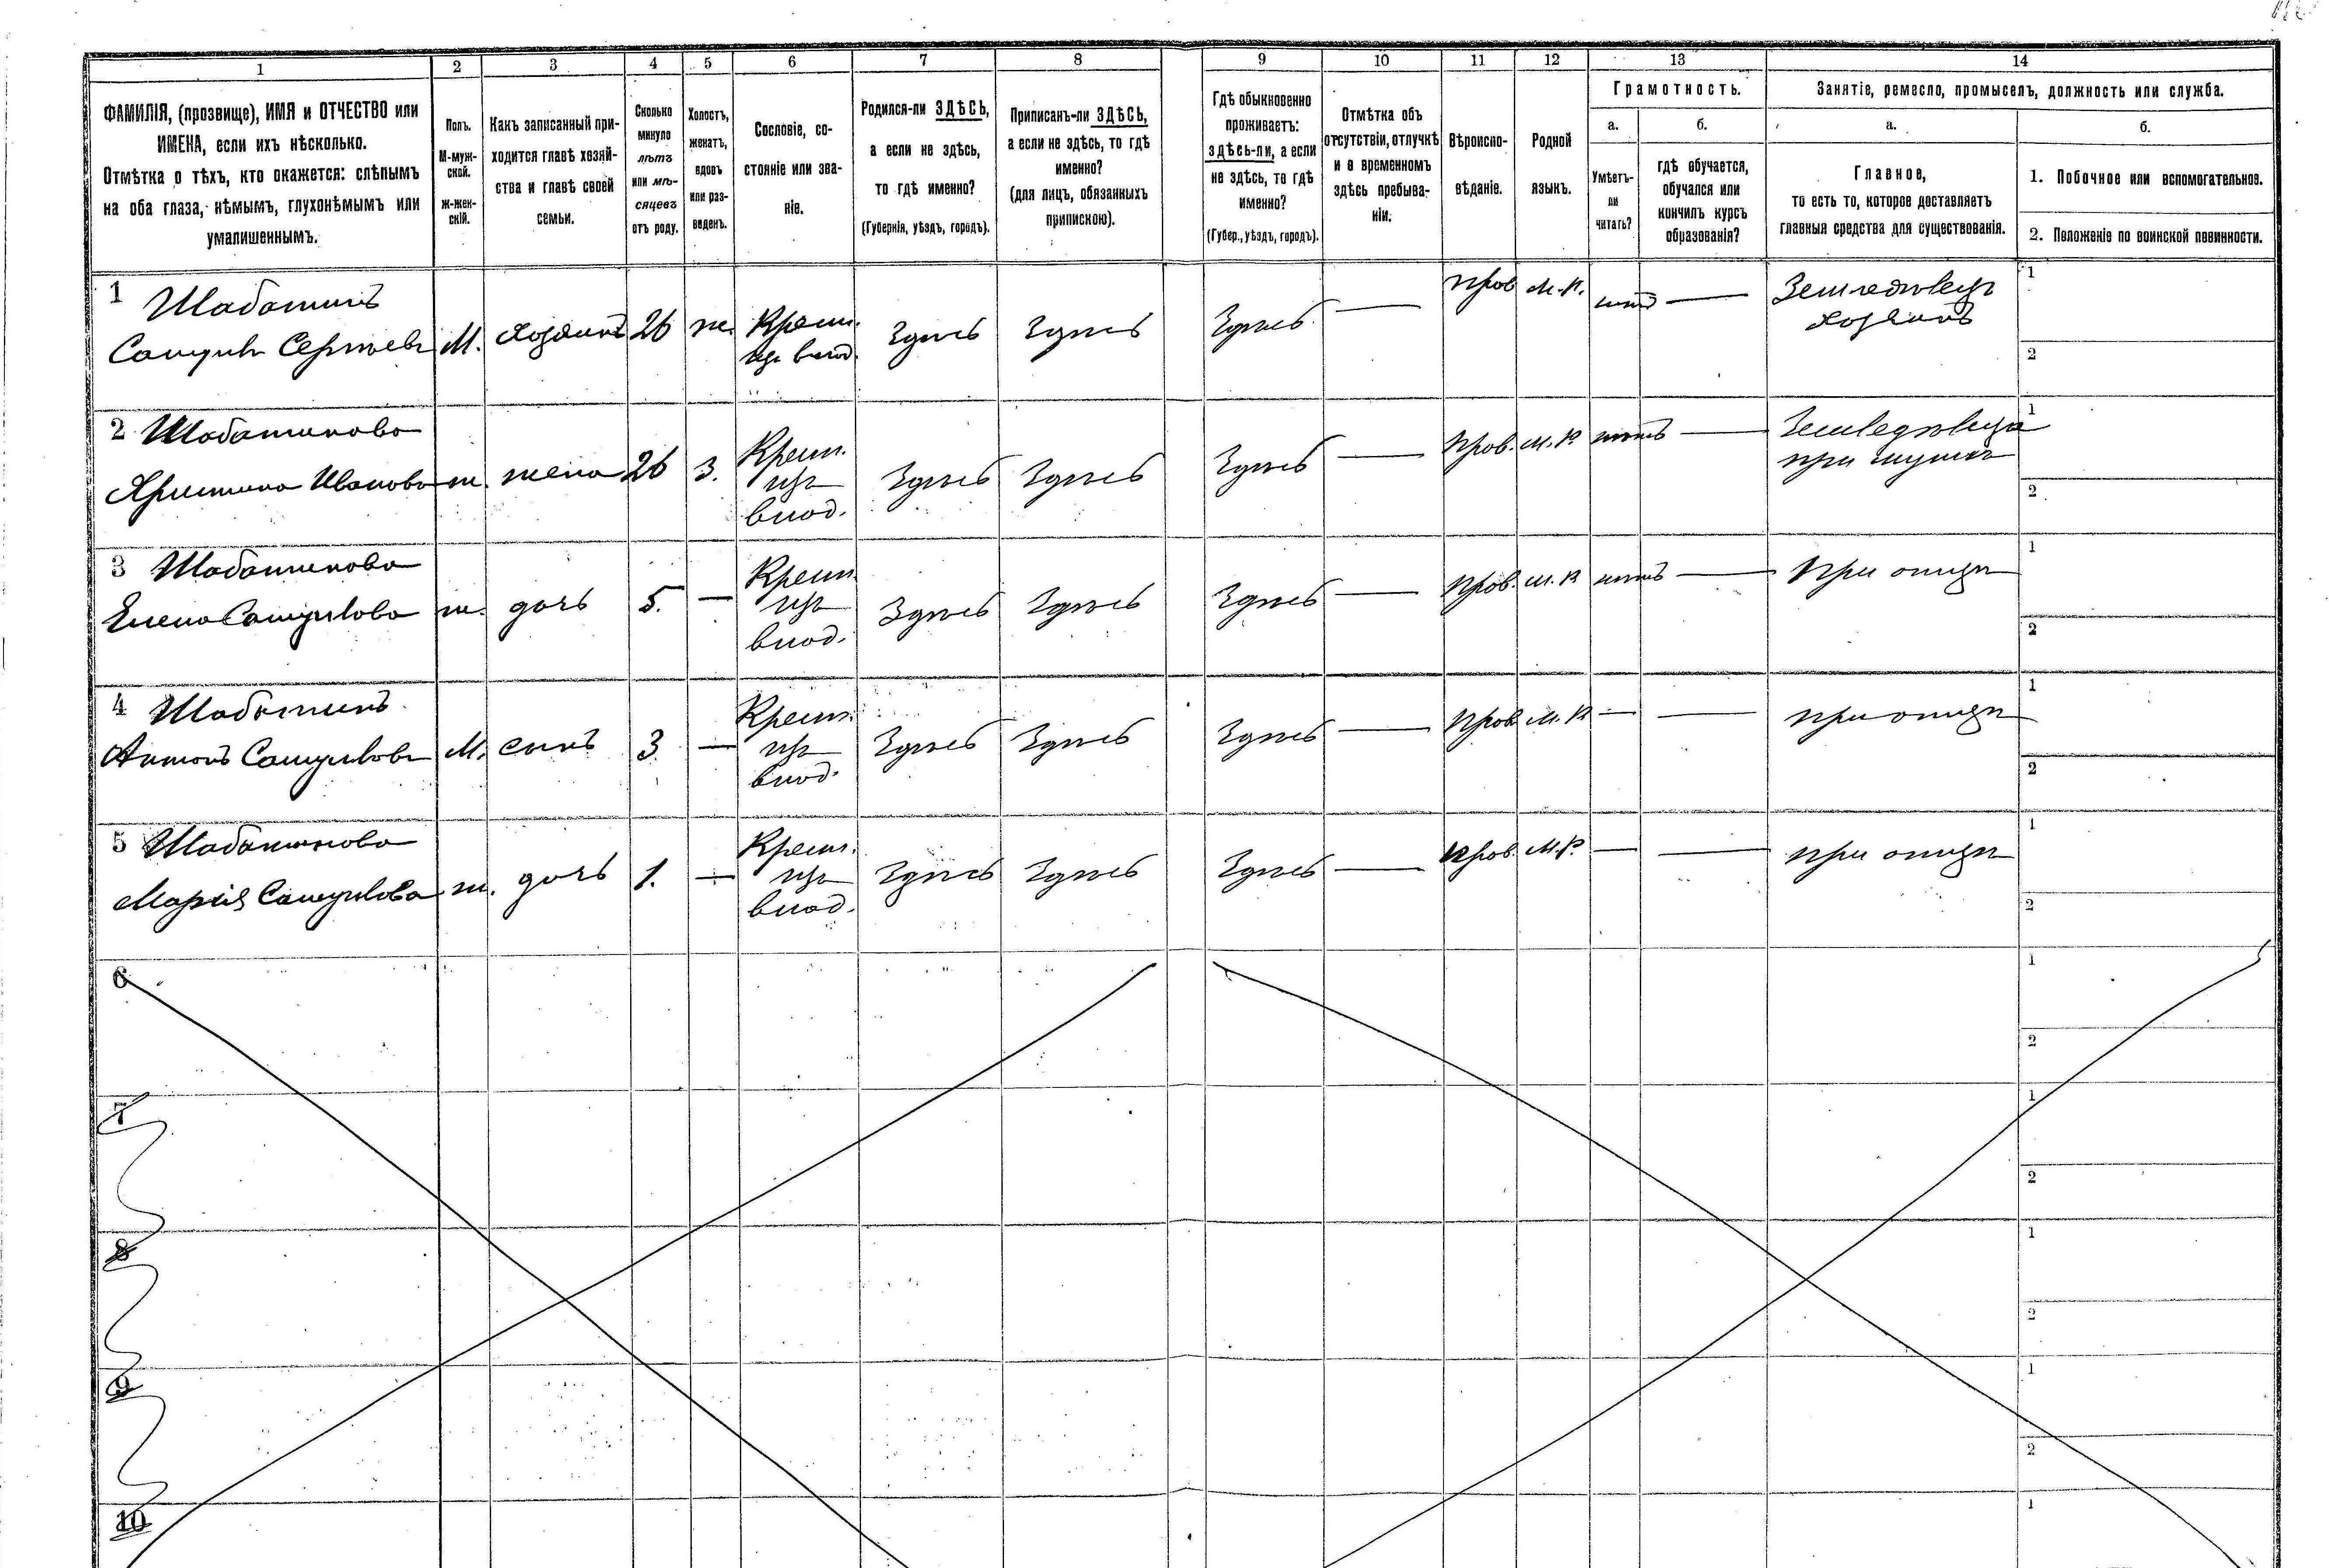 1
2
3
4
5
6
7
8
9
10
11
12
13
14
ФАМИЛІЯ, (прозвище), ИМЯ и ОТЧЕСТВО или
ИМЕНА, если ихъ нѣсколько.
Отмѣтка о тѣхъ, кто окажется: слѣпымъ
на оба глаза, нѣмымъ, глухонѣмымъ или
умалишеннымъ.
Полъ.
М-муж-
ской.
ж-жен-
скій.
Какъ записанный при-
ходится главѣ хозяй-
ства и главѣ своей
семьи.
Сколько
минуло
лѣтъ
или мѣ-
сяцевъ
отъ роду.
Холостъ,
женатъ,
вдовъ
или раз-
веденъ.
Сословіе, со-
стояніе или зва-
ніе.
Родился-ли ЗДѢСЬ,
а если не здѣсь,
то гдѣ именно?
(Губернія, уѣздъ, городъ).
Приписанъ-ли ЗДѢСЬ,
а если не здѣсь, то гдѣ
именно?
(для лицъ, обязанныхъ
припискою).
Гдѣ обыкновенно
проживаетъ:
здѣсь-ли, а если
не здѣсь, то гдѣ
именно?
(Губер., уѣздъ, городъ).
Отмѣтка объ
отсутствіи, отлучкѣ
и о временномъ
здѣсь пребыва-
ніи.
Вѣроиспо-
вѣданіе.
Родной
языкъ.
Грамотность.
а.
Умѣетъ-
ли
читать?
б.
гдѣ обучается,
обучался или
кончилъ курсъ
образованія?
Занятіе, ремесло, промыселъ, должность или служба.
а.
Главное,
то есть то, которое доставляетъ
главныя средства для существованія.
б.
1. Побочное или вспомогательное.
2. Положеніе по воинской повинности.
1 Шабатинъ
Самуилъ Сергѣевъ
М.
хозяинъ
26
ж.
Крест.
изъ влад.
Здѣсь
Здѣсь
Здѣсь
—
Прав
М.Р.
нѣтъ
—
Земледѣлецъ
хозяинъ
1
2
2 Шабатинова
Христина Иванова
ж.
жена
26
з.
Крест.
изъ
влад.
Здѣсь
Здѣсь
Здѣсь
—
Прав.
М.Р.
нѣтъ
—
Земледѣлица
при мужѣ
1
2
3 Шабатинова
Елена Самуилова
ж.
дочь
5.
—
Крест.
изъ
влад.
Здѣсь
Здѣсь
Здѣсь
—
Прав.
М.Р
нѣтъ
—
При отцѣ
1
2
4 Шабатинъ
Антонъ Самуиловъ
М.
сынъ
3
—
Крест.
изъ
влад.
Здѣсь
Здѣсь
Здѣсь
—
Прав
М.Р
—
—
при отцѣ
1
2
5 Шабатинова
Марія Самуилова
ж.
дочь
1.
—
Крест.
изъ
влад.
Здѣсь
Здѣсь
Здѣсь
—
Прав.
М.Р.
—
—
при отцѣ
1
2
6
1
2
7
1
2
8
1
2
9
1
2
10
1